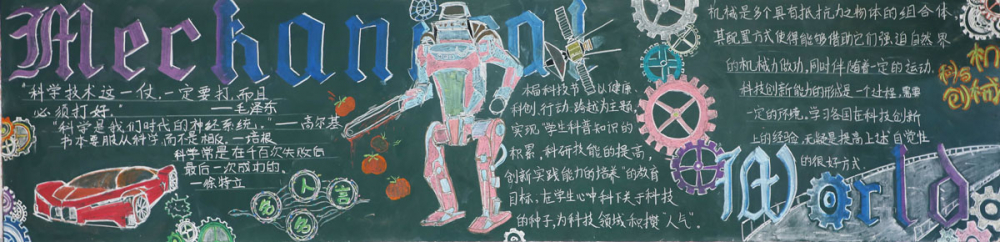 Mechanical
"科学技术这一仗,一定要打,而且
必须打好。" ——毛泽东
"科学是我们时代的神经系统。" ——高尔基
书本要服从科学,而不是相反。——培根
科学常是在千百次失败后
最后一次成功的。
——徐特立
名人名言
本届科技节以健康
科创,行动,跨越为主题,
实现"学生科普知识的
积累,科研技能的提高,
创新实践能力的培养"的教育
目标,在学生心中种下关于科技
的种子,为科技领域积攒"人气"。
机械是多个具有抵抗力之物体的组合体,
其配置方式使得能够借助它们强迫自然界
的机械力做功,同时伴随着一定的运动
科技创新能力的形成是一个过程,需要
一定的环境。学习各国在科技创新
上的经验,无疑是提高上述自觉性
的很好方式
机械
科创
World